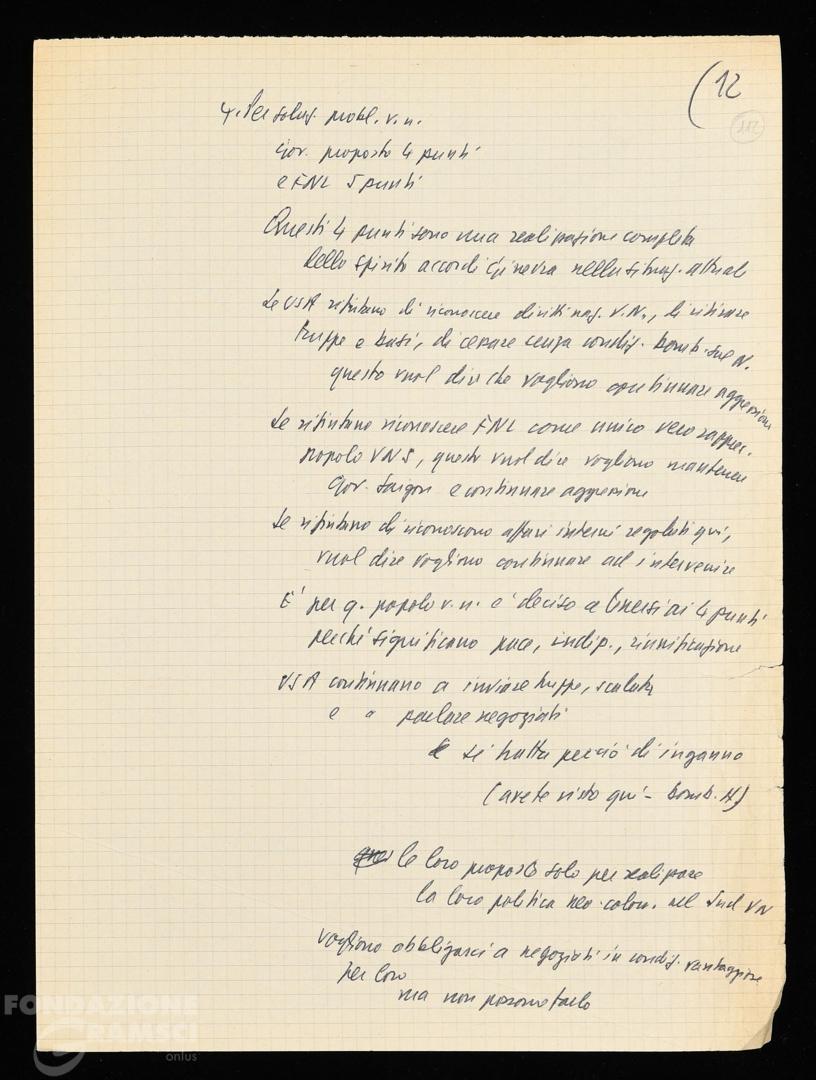 (12
112
4. Per soluz. probl. v.n.
Gov. proposto 4 punti
e FNL 5 punti
Questi 4 punti sono una realizzazione completa
dello spirito accordi Ginevra nella situaz. attuale
Se USA rifiutano di riconoscere diritti naz. V.N., di ritirare
truppe e basi, di cessare senza condiz. bomb. sul N.
questo vuol dire che vogliono continuare aggressione
Se rifiutano riconoscere FNL come unico vero rappres.
popolo VNS, questo vuol dire vogliono mantenere
Gov. Saigon e continuare aggressione
Se rifiutano di riconoscono affari interni regolati qui,
vuol dire vogliono continuare ad intervenire
E' per q. popolo v.n. e' deciso a tenersi ai 4 punti
perché significano pace, indip., riunificazione
USA continuano a inviare truppe, scalata
e a parlare negoziati
si tratta perciò di inganno
(avete visto qui - bomb. H)
le loro proposte solo per realizzare
la loro politica neo-colon. nel Sud VN
Vogliono obbligarci a negoziati in condiz. vantaggiose
per loro
ma non possono farlo
FONDAZIONE
GRAMSCI
onlus